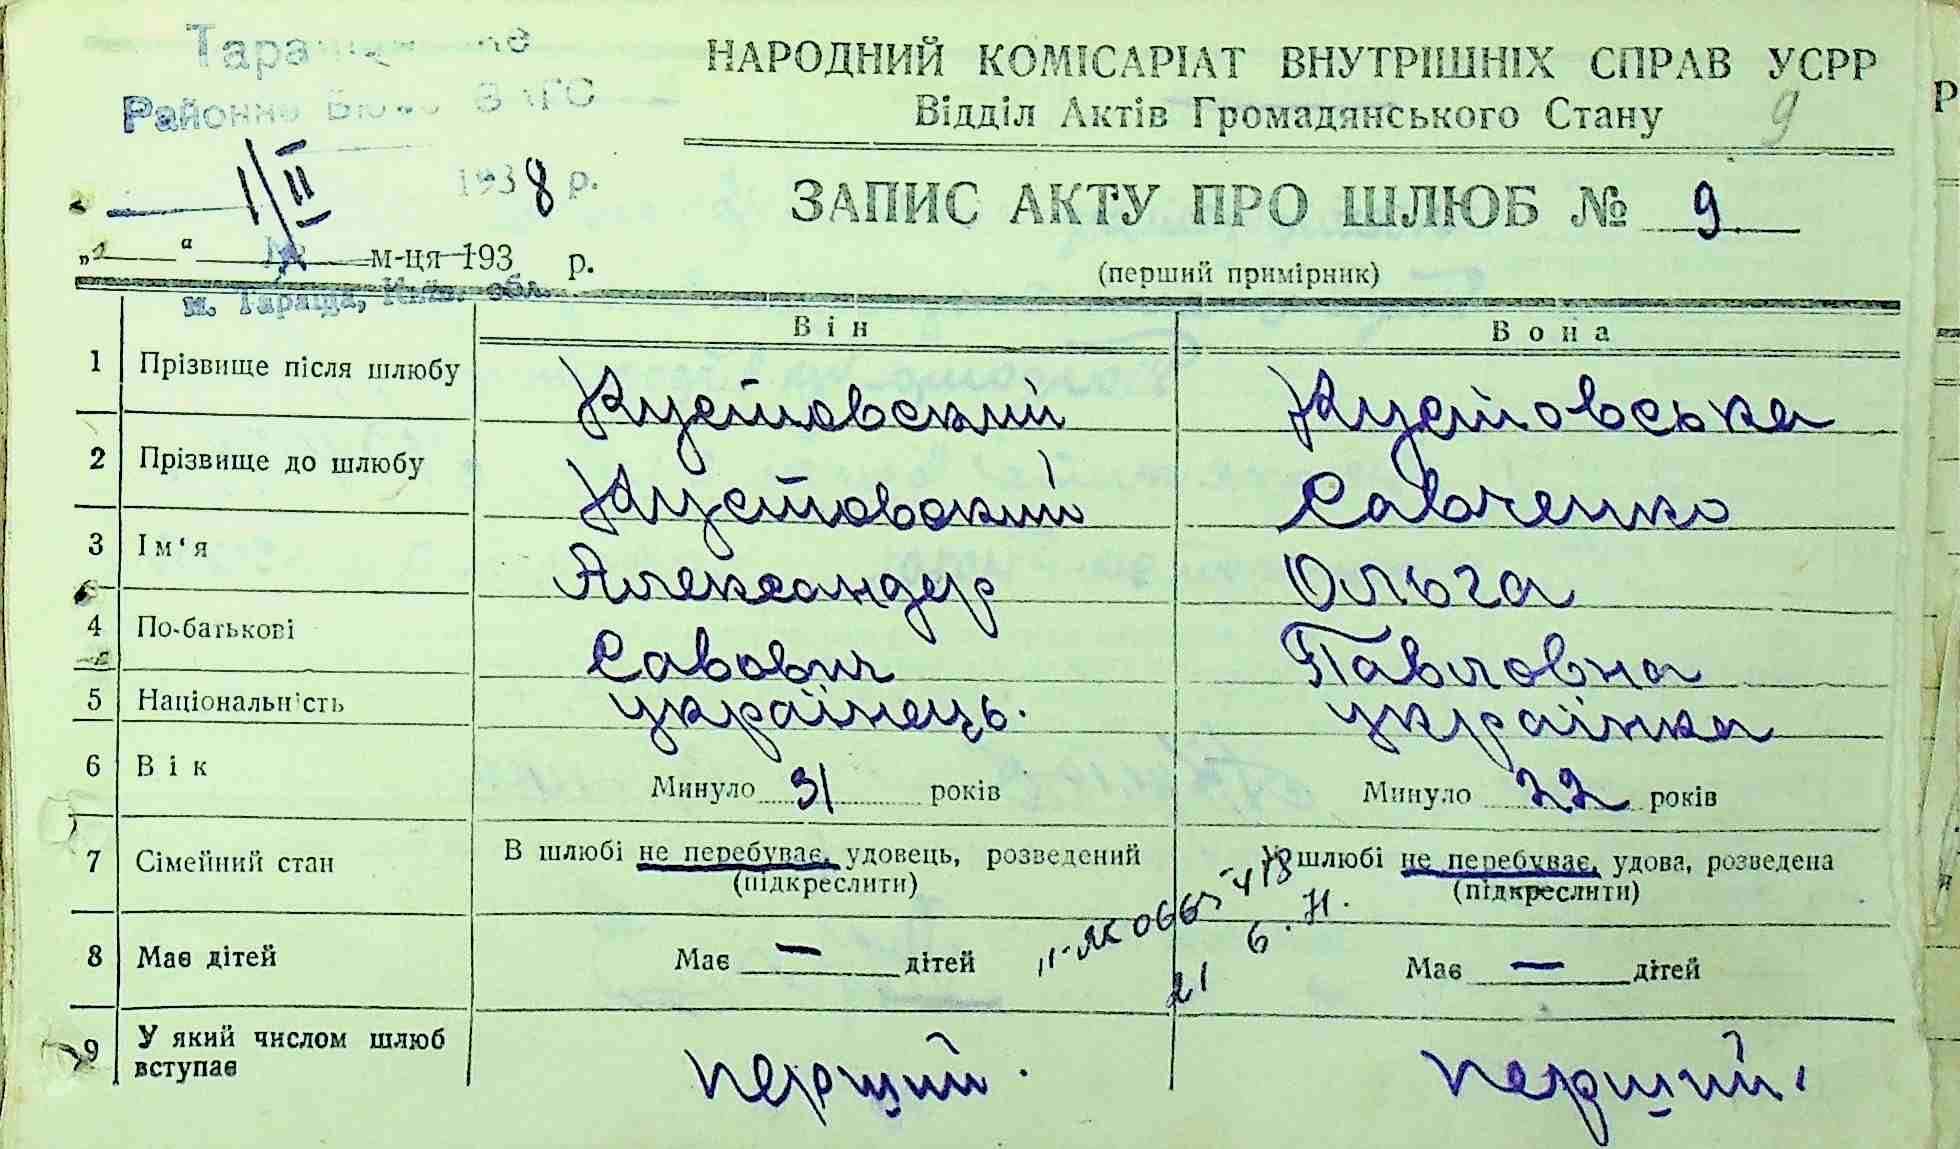 Районне Бюро ЗАГС
1/II 1938 р.
„ “ м-ця 193 р.
м. Тараща, Київ. обл.
НАРОДНИЙ КОМІСАРІАТ ВНУТРІШНІХ СПРАВ УСРР
Відділ Актів Громадянського Стану
9
ЗАПИС АКТУ ПРО ШЛЮБ № 9
(перший примірник)
Він Вона
1 Прізвище після шлюбу Кустовский Кустовська
2 Прізвище до шлюбу Кустовский Савченко
3 Ім‘я Александер Ольга
4 По-батькові Савович Павловна
5 Національність українець. українка
6 Вік Минуло 31 років Минуло 22 років
7 Сімейний стан В шлюбі не перебуває, удовець, розведений У шлюбі не перебуває, удова, розведена
(підкреслити) (підкреслити)
8 Має дітей Має — дітей Має — дітей
21 6. 71.
9 У який числом шлюб вступає перший. перший.